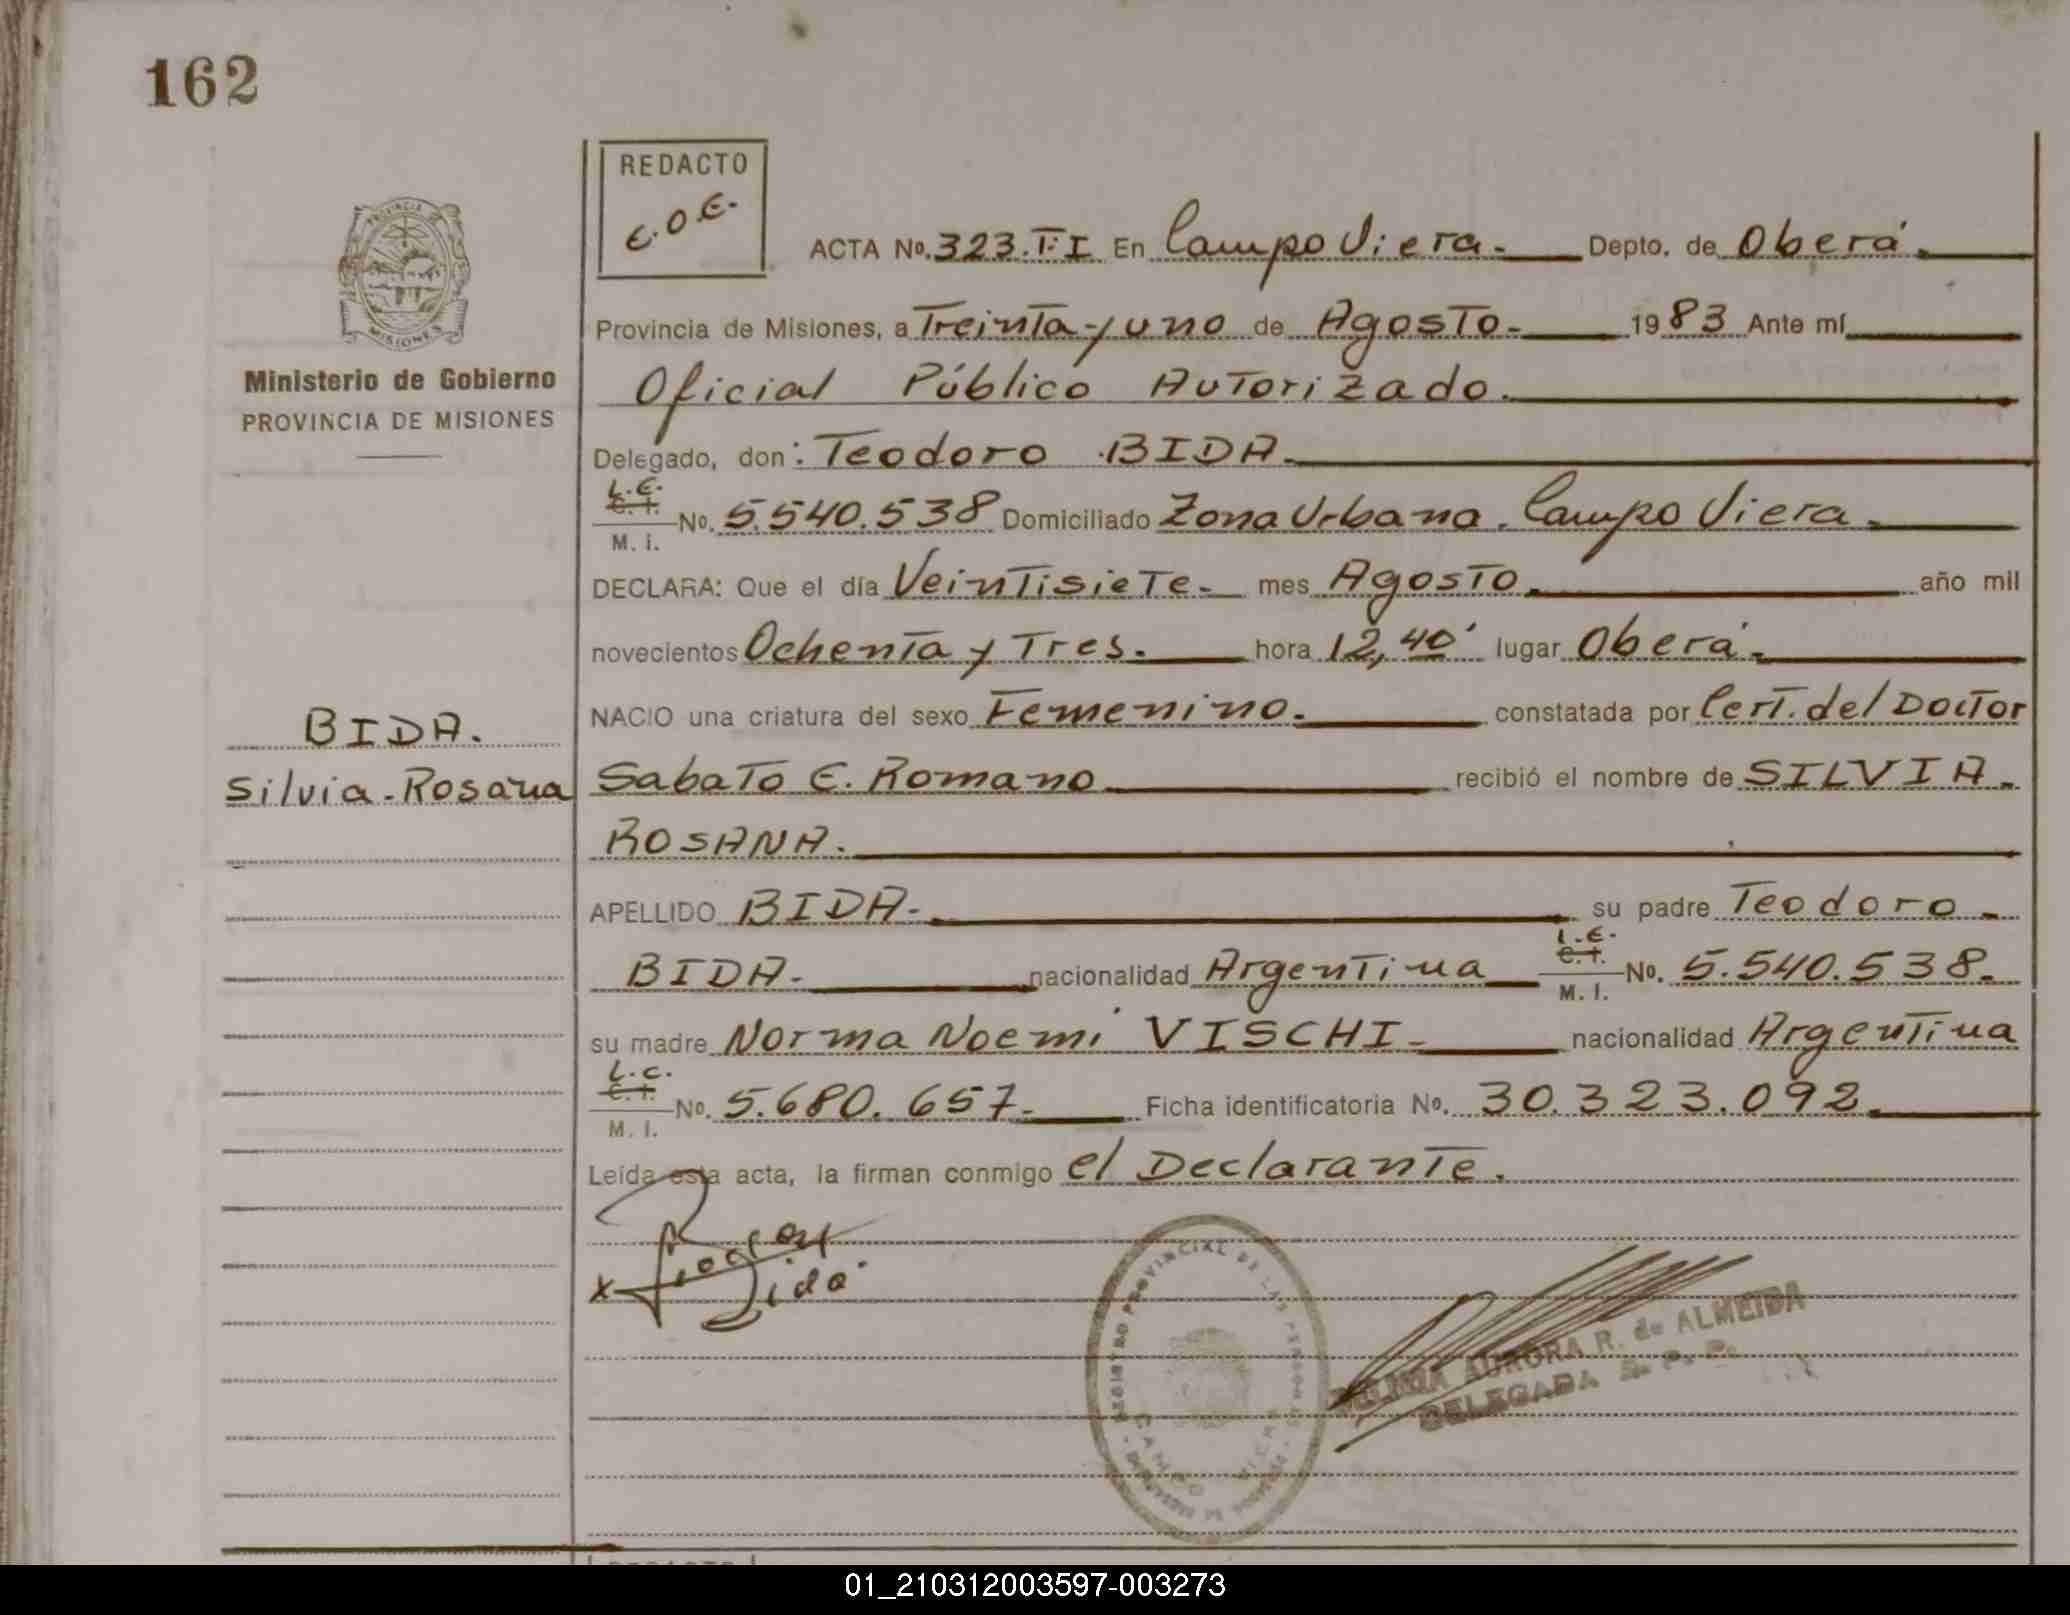 162
REDACTO
E.O.E.
PROVINCIA DE
MISIONES
Ministerio de Gobierno
PROVINCIA DE MISIONES
BIDA.
Silvia-Rosana
ACTA No. 323.T:I En Campo Viera.- Depto. de Oberá.
Provincia de Misiones, a Treinta y uno de Agosto.- 1983 Ante mí
Oficial Público Autorizado.
Delegado, don: Teodoro BIDA.
L.E.
C.I.
M. I. No. 5.540.538 Domiciliado Zona Urbana. Campo Viera.
DECLARA: Que el día Veintisiete.- mes Agosto. año mil
novecientos Ochenta y Tres. hora 12,40' lugar Oberá.
NACIO una criatura del sexo Femenino. constatada por Cert. del Doctor
Sabato E. Romano recibió el nombre de SILVIA.
ROSANA.
APELLIDO BIDA.- su padre Teodoro
BIDA. nacionalidad Argentina L.E. C.I. M. I. No. 5.540.538.
su madre Norma Noemí VISCHI.- nacionalidad Argentina
L.C.
C.I.
M. I. No. 5.680.657.- Ficha identificatoria No. 30.323.092.
Leída esta acta, la firman conmigo el Declarante.
x Bida
REGISTRO PROVINCIAL DE LAS PERSONAS
CAMPO VIERA
AURORA R. de ALMEIDA
DELEGADA R. P. P.
01_210312003597-003273